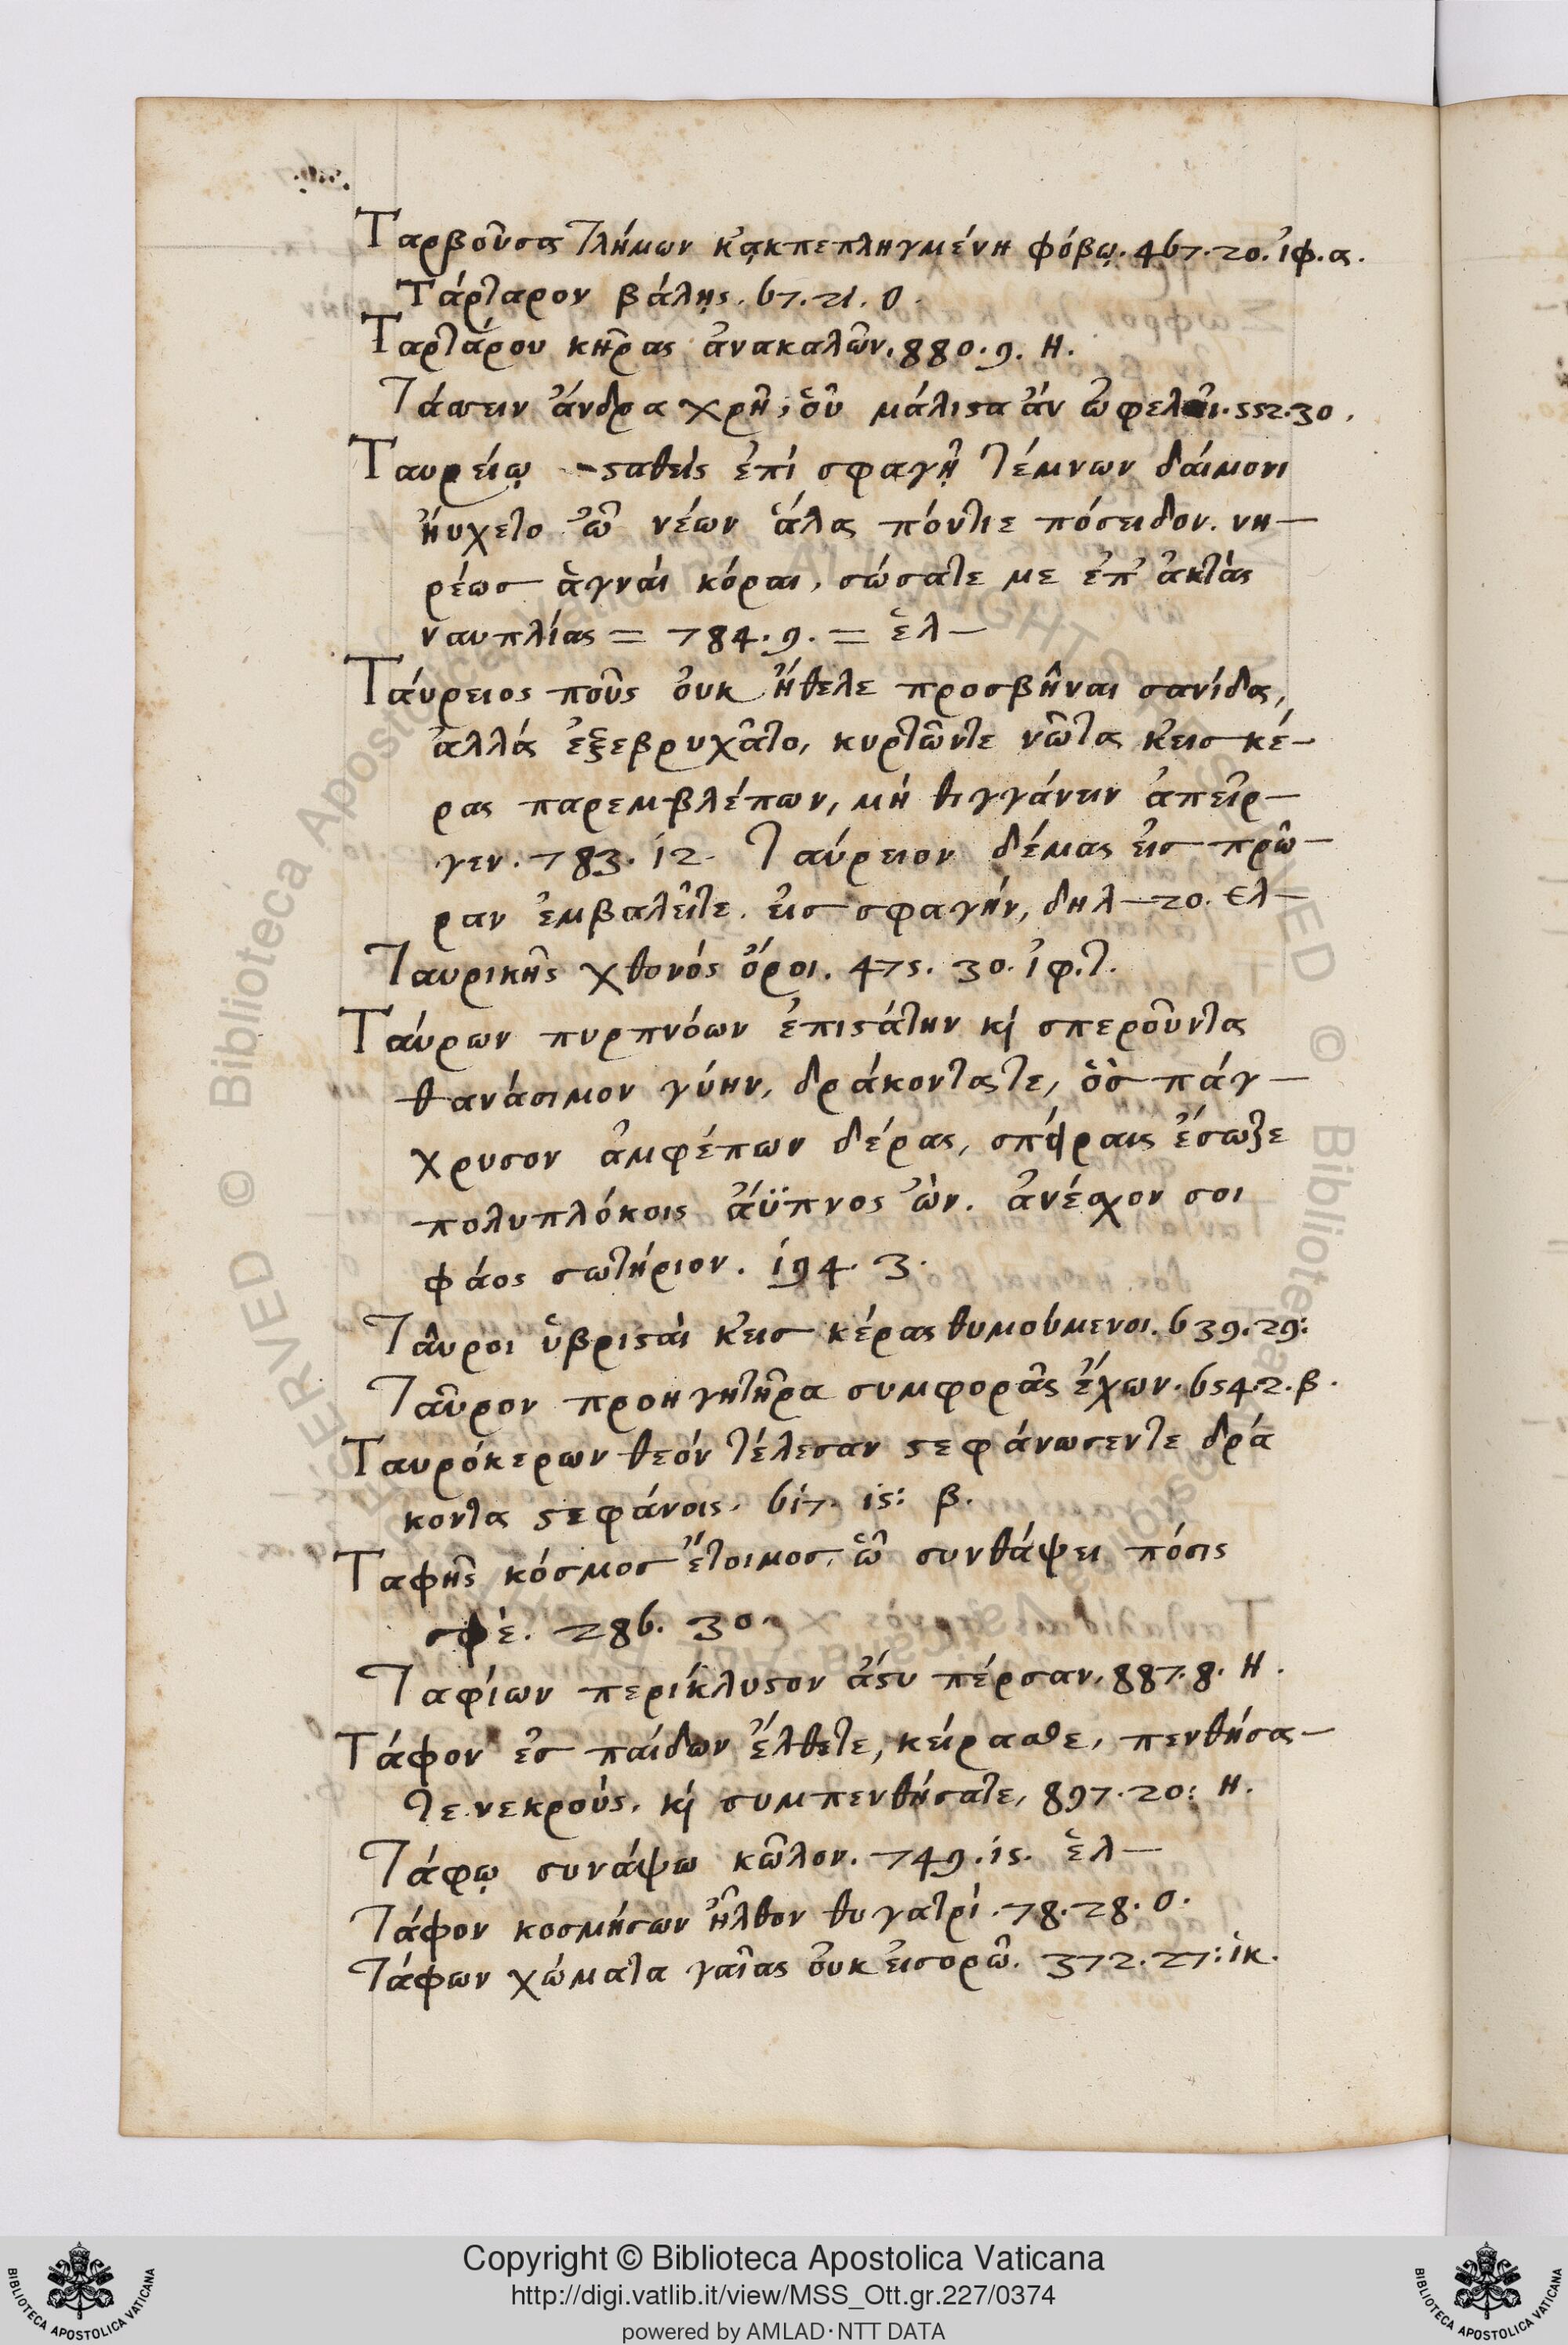 Ταρβοῦσα τλήμων κἀκπεπληγμένη φόβῳ. 467. 20. ἰφ. α.
Τάρταρον βάλῃς. 67. 21. ο.
Ταρτάρου κῆρας ἀνακαλῶν. 880. 9. Η.
Τάσσειν ἄνδρα χρὴ, οὗ μάλιστα ἂν ὠφελοῖ. 552. 30.
Ταυρείῳ -σταθεὶς ἐπὶ σφαγῇ τέμνων δαίμονι
ηὔχετο ὦ νέων ἅλας πόντιε πόσειδον. νη-
ρέως ἁγναὶ κόραι, σώσατε με ἐπ' ἀκτὰς
ναυπλίας = 784. 9. = ἑλ-
Ταύρειος ποὺς οὐκ ἤθελε προσβῆναι σανίδα,
ἀλλὰ ἐξεβρυχᾶτο, κυρτῶντε νῶτα κεἰς κέ-
ρας παρεμβλέπων, μὴ θιγγάνειν ἀπεῖρ-
γεν. 783. 12. Ταύρειον δέμας εἰς πρῶ-
ραν ἐμβαλεῖτε. εἰς σφαγήν, δηλ- 20. ελ-
Ταυρικῆς χθονὸς ὅροι. 475. 30. ἰφ. τ.
Ταύρων πυρπνόων ἐπιστάτην κὶ σπεροῦντα
θανάσιμον γύην, δράκοντατε, ὃς πάγ-
χρυσον ἀμφέπων δέρας, σπείραις ἔσωζε
πολυπλόκοις ἄϋπνος ὢν. ἀνέσχον σοι
φάος σωτήριον. 194. 3.
Ταῦροι ὑβρισταὶ κεἰς κέρας θυμούμενοι. 639. 29:
Ταῦρον προηγητῆρα συμφορᾶς ἔχων. 654. 2. β.
Ταυρόκερων θεὸν τέλεσαν στεφάνωσεντε δρά
κοντα στεφάνοις. 617. 15: β.
Ταφῆς κόσμος ἕτοιμος, ᾧ συνθάψει πόσις
σφέ. 286. 30.
Ταφίων περίκλυστον ἄστυ πέρσαν. 887. 8. Η.
Τάφον ἐς παίδων ἔλθετε, κείρασθε, πενθήσα-
τε νεκροὺς. κὶ συμπενθήσατε, 897. 20: Η.
Τάφῳ συνάψω κῶλον. 749. 15. ἑλ-
Τάφον κοσμήσων ἦλθον θυγατρί. 78. 28. ο.
Τάφων χώματα γαίας οὐκ εἰσορῶ. 372. 27: ἱκ.
© Biblioteca Apostolica Vaticana
Copyright © Biblioteca Apostolica Vaticana
http://digi.vatlib.it/view/MSS_Ott.gr.227/0374
powered by AMLAD·NTT DATA
BIBLIOTECA APOSTOLICA VATICANA
BIBLIOTECA APOSTOLICA VATICANA